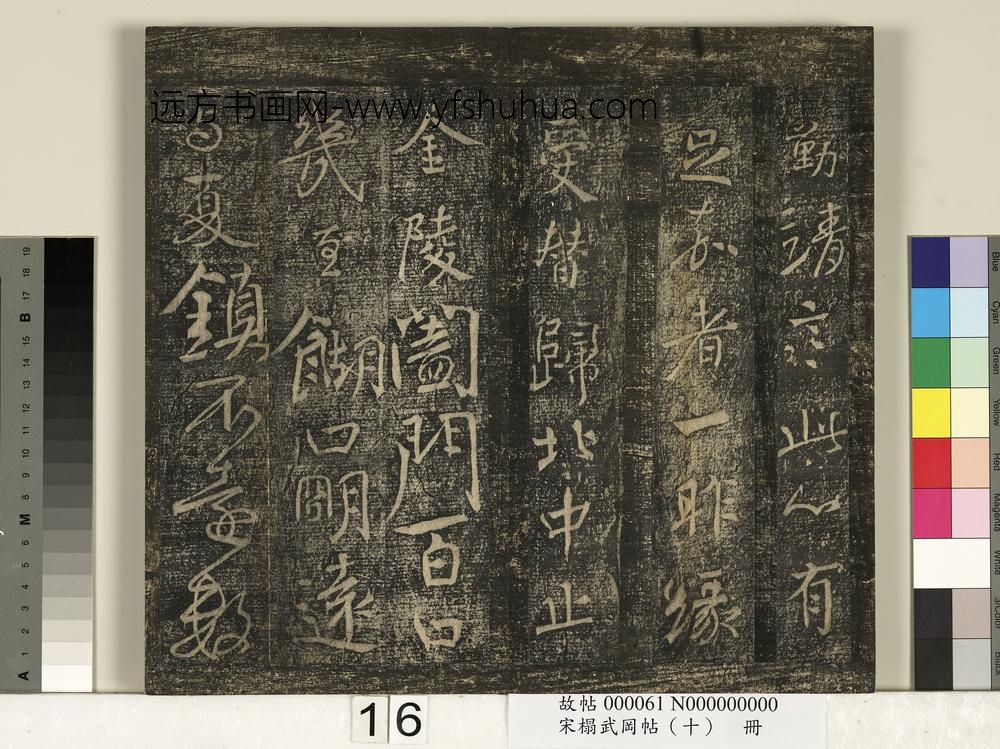 远方书画网-www.yfshuhua.com
勤靖言此心有
足嘉者一昨緣
受替歸北中止
金陵闔門百口
幾至餬口明遠
与夏鎮不遠數
19
18
17
B
16
15
14
13
12
11
10
9
8
M
7
6
5
4
3
2
1
A
Blue
Cyan
Green
Yellow
Red
Magenta
White
3/Color
Black
16
故帖 000061 N000000000
宋榻武岡帖（十） 冊